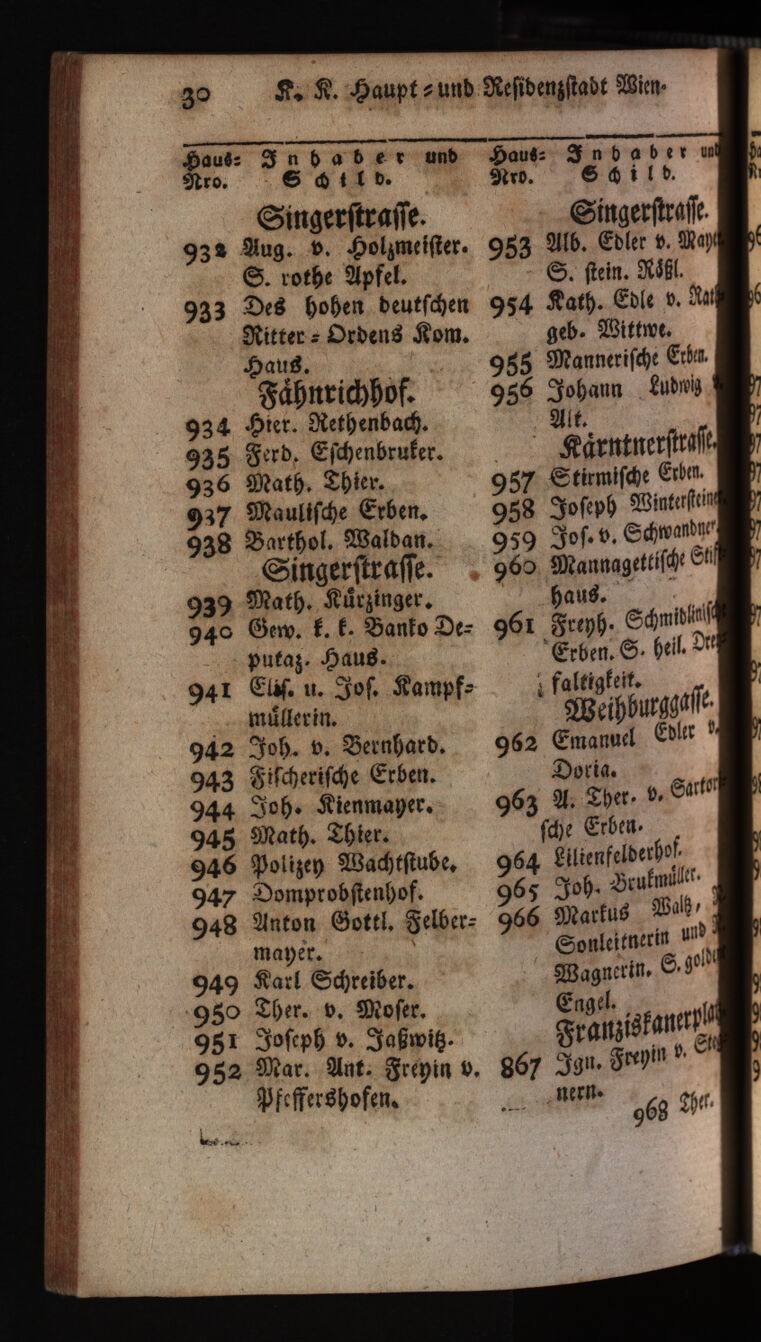 30 K. K. Haupt-und Residenzstadt Wien.
Haus- Inhaber und
Nro. Schild.
Singerstrasse.
932 Aug. v. Holzmeister.
S. rothe Apfel.
933 Des hohen deutschen
Ritter-Ordens Kom.
Haus.
Fähnrichhof.
934 Hier. Rethenbach.
935 Ferd. Eschenbruker.
936 Math. Thier.
937 Maulische Erben.
938 Barthol. Waldan.
Singerstrasse.
939 Math. Kürzinger.
940 Gew. k. k. Banko De-
putaz. Haus.
941 Elis. u. Jos. Kampf-
müllerin.
942 Joh. v. Bernhard.
943 Fischerische Erben.
944 Joh. Kienmayer.
945 Math. Thier.
946 Polizey Wachtstube.
947 Domprobstenhof.
948 Anton Gottl. Felber-
mayer.
949 Karl Schreiber.
950 Ther. v. Moser.
951 Joseph v. Jaßwitz.
952 Mar. Ant. Freyin v.
Pfeffershofen.
Haus- Inhaber und
Nro. Schild.
Singerstrasse.
953 Alb. Edler v.
S. stein. Rößl.
954 Kath. Edle v.
geb. Wittwe.
955 Mannerische Erben.
956 Johann Ludwig
Alt.
Kärntnerstrasse.
957 Stirmische Erben.
958 Joseph
959 Jos. v. Schwandner.
960 Mannagettische
haus.
961 Freyh.
Erben. S. heil.
faltigkeit.
Weihburggasse.
962 Emanuel Edler v.
Doria.
963 A. Ther. v.
sche Erben.
964 Lilienfelderhof.
965 Joh. Brukmüller.
966 Markus Waltz,
Sonleitnerin und
Wagnerin. S.
Engel.
867 Ign. Freyin v.
nern.
968 Ther.